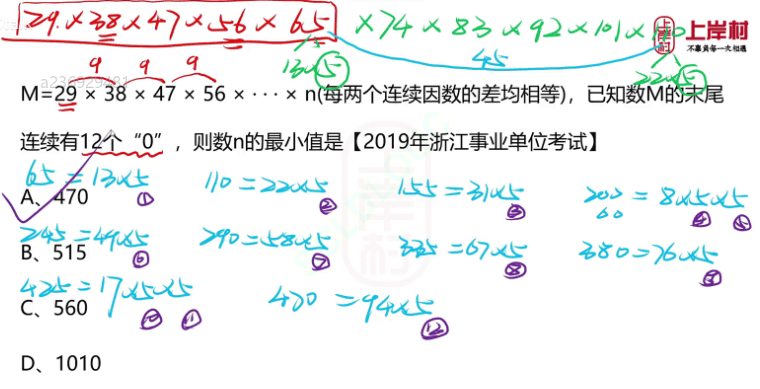 29×38×47×56×65 ×74×83×92×101×110
上岸村
不辜负每一次相遇
9 9 9
45
13×5
22×5
a236929481
M=29 × 38 × 47 × 56 × · · · × n(每两个连续因数的差均相等)，已知数M的末尾
连续有12个“0”，则数n的最小值是【2019年浙江事业单位考试】
65=13×5 ① 110=22×5 ② 155=31×5 ③ 200=8×5×5 ④ ⑤
A、470
245=49×5 ⑥ 290=58×5 ⑦ 335=67×5 ⑧ 380=76×5 ⑨
B、515
425=17×5×5 ⑩ ⑪ 470=94×5 ⑫
C、560
D、1010